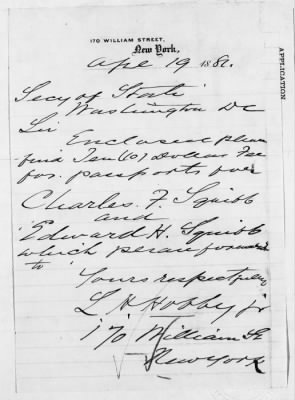 170 WILLIAM STREET,
New York,
Apl 19 188
APPLICATION
Secy of State
Washington DC
Sir
Enclosed please
find Ten (10) Dollars Fee
for passports over
Charles F. Squibb
and
Edward H. Squibb
which please forward
to
Yours respectfully
L H Hobby jr
170 William St
New York